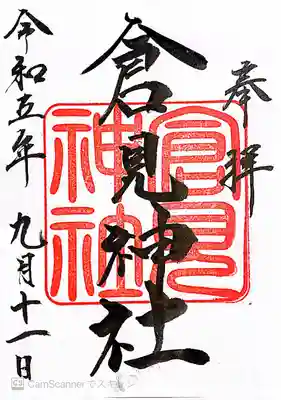 奉拝
倉見神社
倉見
神社
令和五年 九月十一日
CS CamScannerでスキャン